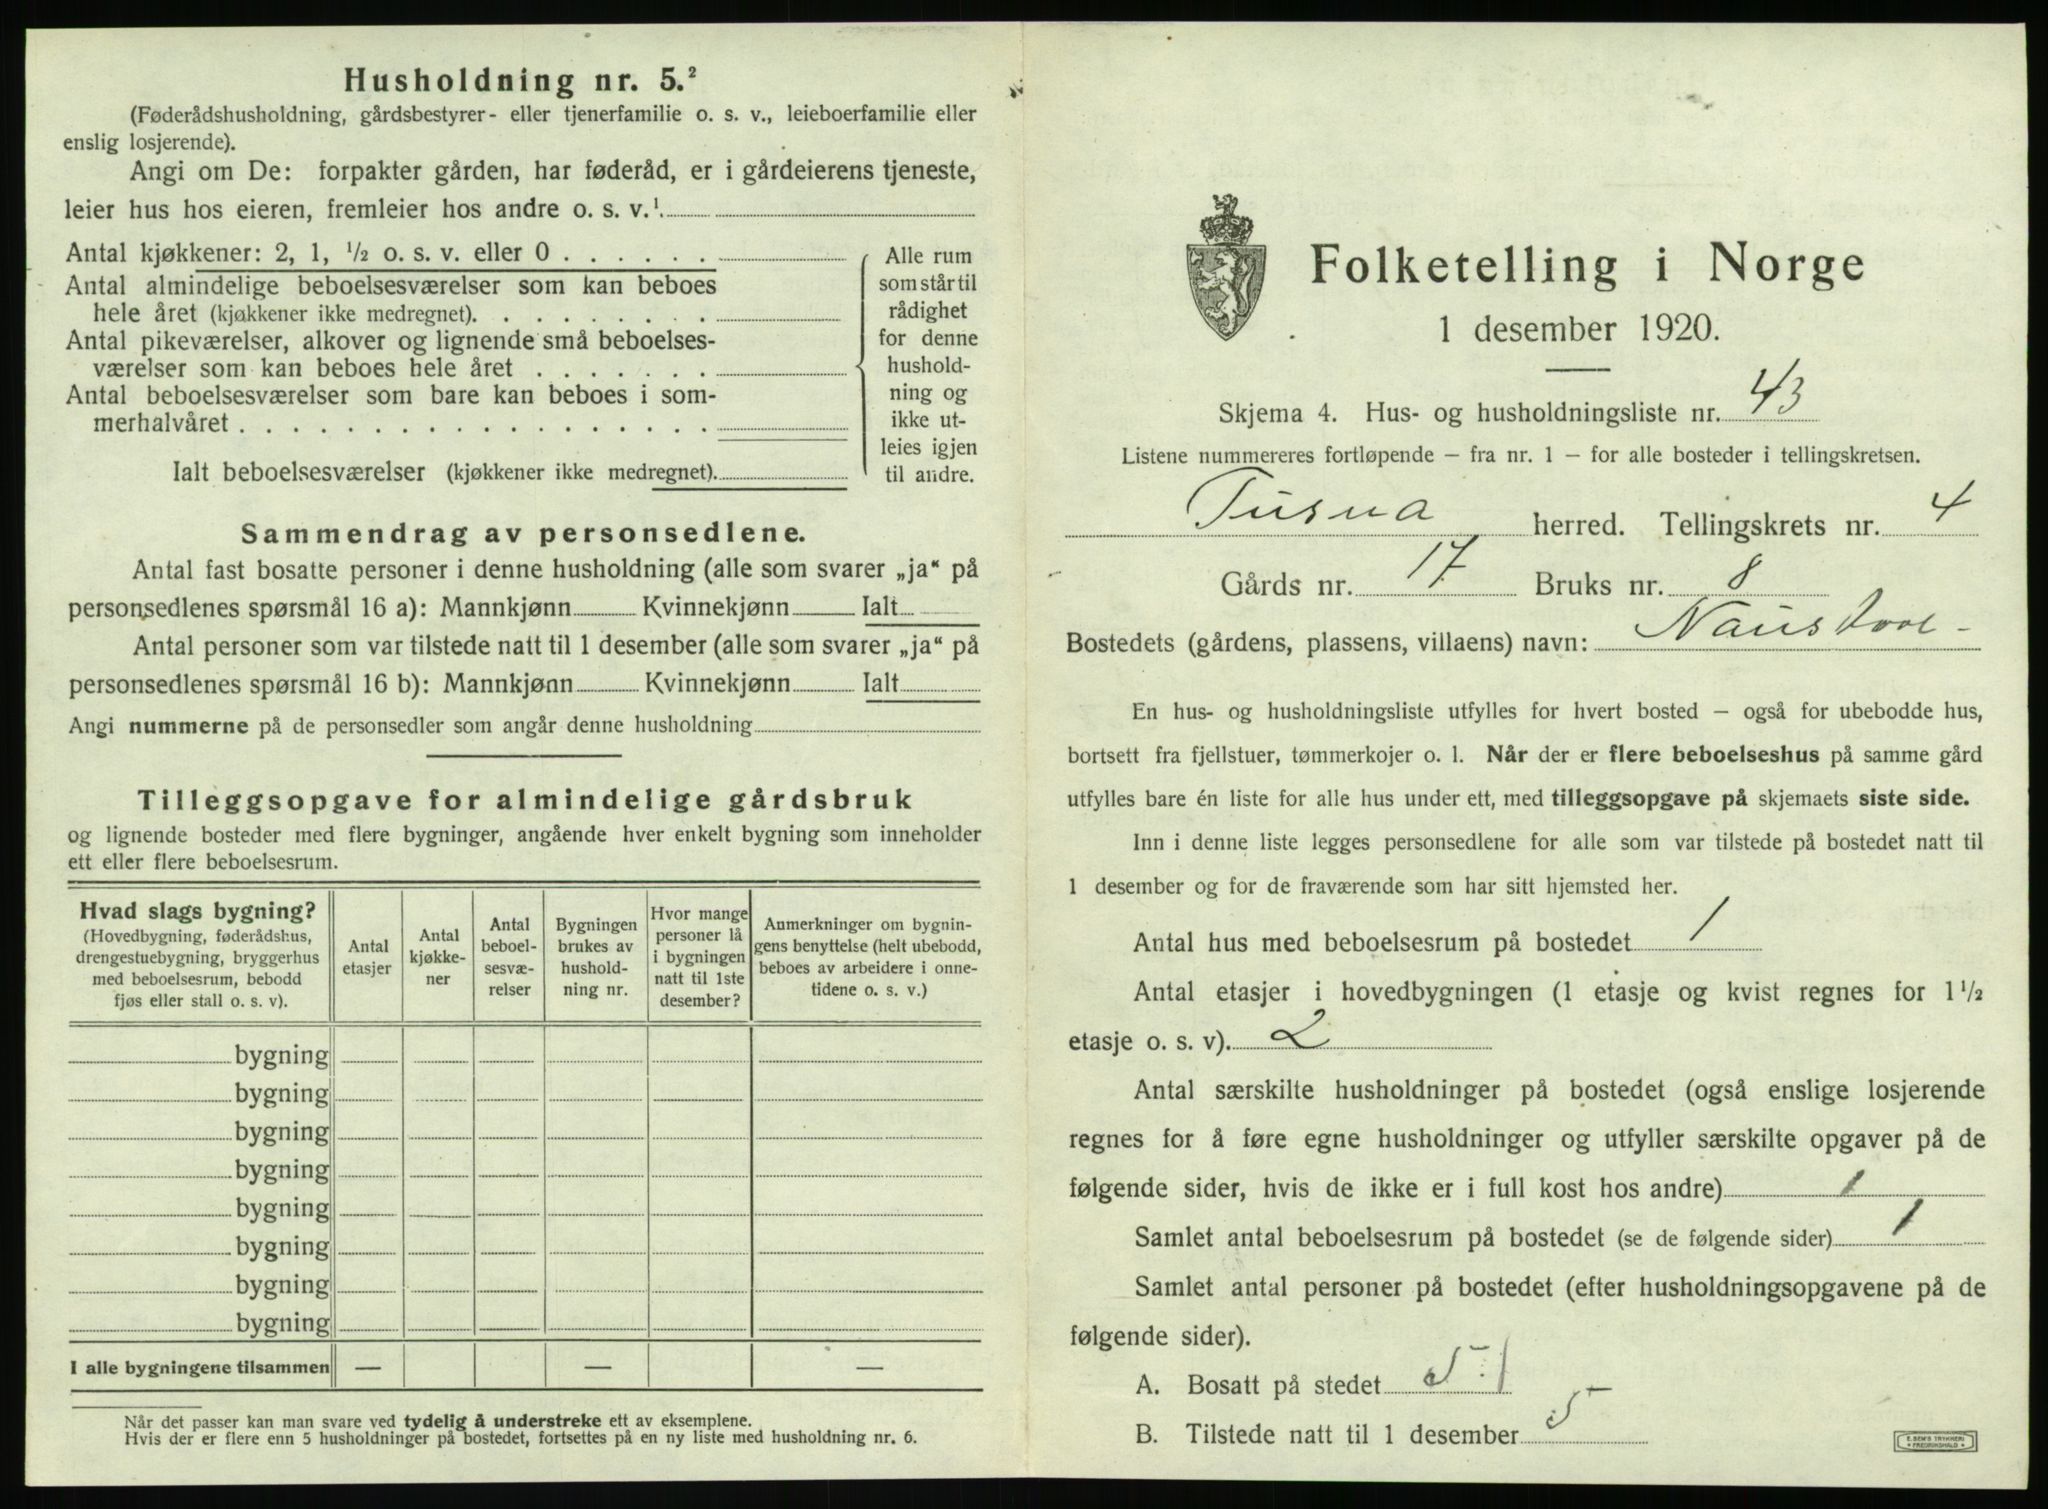 Husholdning nr. 5.²
(Føderådshusholdning, gårdsbestyrer- eller tjenerfamilie o. s. v., leieboerfamilie eller
enslig losjerende).
Angi om De: forpakter gården, har føderåd, er i gårdeierens tjeneste,
leier hus hos eieren, fremleier hos andre o. s. v.¹
Antal kjøkkener: 2, 1, ½ o. s. v. eller 0 . . . . . .
Antal almindelige beboelsesværelser som kan beboes
hele året (kjøkkener ikke medregnet). . . . . . . . .
Antal pikeværelser, alkover og lignende små beboelses-
værelser som kan beboes hele året . . . . . . .
Antal beboelsesværelser som bare kan beboes i som-
merhalvåret . . . . . . . . . . . . . . . . . .
Ialt beboelsesværelser (kjøkkener ikke medregnet).
Alle rum
som står til
rådighet
for denne
hushold-
ning og
ikke ut-
leies igjen
til andre.
Sammendrag av personsedlene.
Antal fast bosatte personer i denne husholdning (alle som svarer „ja“ på
personsedlenes spørsmål 16 a): Mannkjønn Kvinnekjønn Ialt
Antal personer som var tilstede natt til 1 desember (alle som svarer „ja“ på
personsedlenes spørsmål 16 b): Mannkjønn Kvinnekjønn Ialt
Angi nummerne på de personsedler som angår denne husholdning
Tilleggsopgave for almindelige gårdsbruk
og lignende bosteder med flere bygninger, angående hver enkelt bygning som inneholder
ett eller flere beboelsesrum.
Hvad slags bygning?
(Hovedbygning, føderådshus,
drengestuebygning, bryggerhus
med beboelsesrum, bebodd
fjøs eller stall o. s. v).
Antal
etasjer
Antal
kjøkke-
ner
Antal
beboel-
sesvæ-
relser
Bygningen
brukes av
hushold-
ning nr.
Hvor mange
personer lå
i bygningen
natt til 1ste
desember?
Anmerkninger om bygnin-
gens benyttelse (helt ubebodd,
beboes av arbeidere i onne-
tidene o. s. v.)
bygning
bygning
bygning
bygning
bygning
bygning
bygning
bygning
I alle bygningene tilsammen — — —
Når det passer kan man svare ved tydelig å understreke ett av eksemplene.
Hvis der er flere enn 5 husholdninger på bostedet, fortsettes på en ny liste med husholdning nr. 6.
Folketelling i Norge
1 desember 1920.
Skjema 4. Hus- og husholdningsliste nr. 43
Listene nummereres fortløpende – fra nr. 1 – for alle bosteder i tellingskretsen.
Tusna herred. Tellingskrets nr. 4
Gårds nr. 17 Bruks nr. 8
Bostedets (gårdens, plassens, villaens) navn:
En hus- og husholdningsliste utfylles for hvert bosted – også for ubebodde hus,
bortsett fra fjellstuer, tømmerkojer o. l. Når der er flere beboelseshus på samme gård
utfylles bare én liste for alle hus under ett, med tilleggsopgave på skjemaets siste side.
Inn i denne liste legges personsedlene for alle som var tilstede på bostedet natt til
1 desember og for de fraværende som har sitt hjemsted her.
Antal hus med beboelsesrum på bostedet 1
Antal etasjer i hovedbygningen (1 etasje og kvist regnes for 1 ½
etasje o. s. v). 2
Antal særskilte husholdninger på bostedet (også enslige losjerende
regnes for å føre egne husholdninger og utfyller særskilte opgaver på de
følgende sider, hvis de ikke er i full kost hos andre) 1
Samlet antal beboelsesrum på bostedet (se de følgende sider) 1
Samlet antal personer på bostedet (efter husholdningsopgavene på de
følgende sider).
A. Bosatt på stedet 5
B. Tilstede natt til 1 desember 5
E. SEM'S TRYKKERI
FREDRIKSHALD